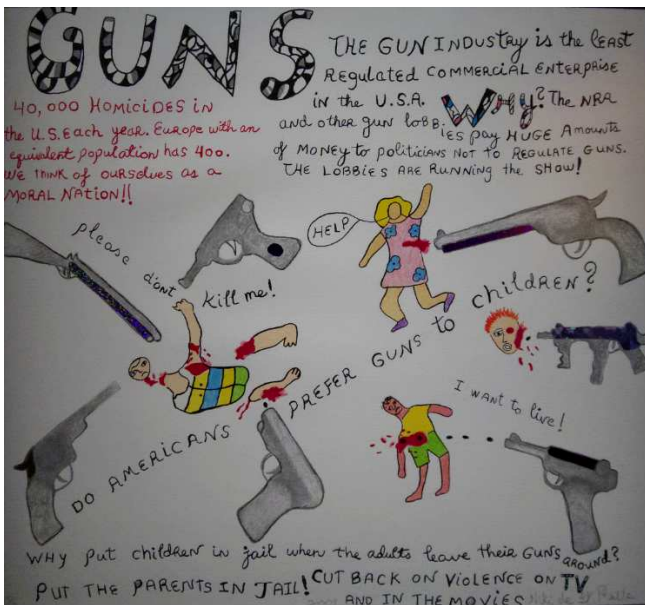 GUNS
THE GUN INDUSTRY is the LEAST
REGULATED COMMERCIAL ENTERPRISE
in the U.S.A. WHY? The NRA
and other gun lobb-
ies pay HUGE Amounts
of MONEY to politicians NOT to REGULATE GUNS.
THE LOBBIES ARE RUNNING the SHOW!
40,000 HOMICIDES IN
the U.S. Each year. Europe with an
equivlent population has 400.
WE THINK OF OURSELVES AS A
MORAL NATION!!
please dont
kill me!
HELP
DO AMERICANS PREFER GUNS to children?
I want to live!
WHY PUT children in jail when the adults leave their GUNS around?
PUT THE PARENTS IN JAIL! CUT BACK ON VIOLENCE ON TV
AND IN THE MOVIES
Niki de St Phalle